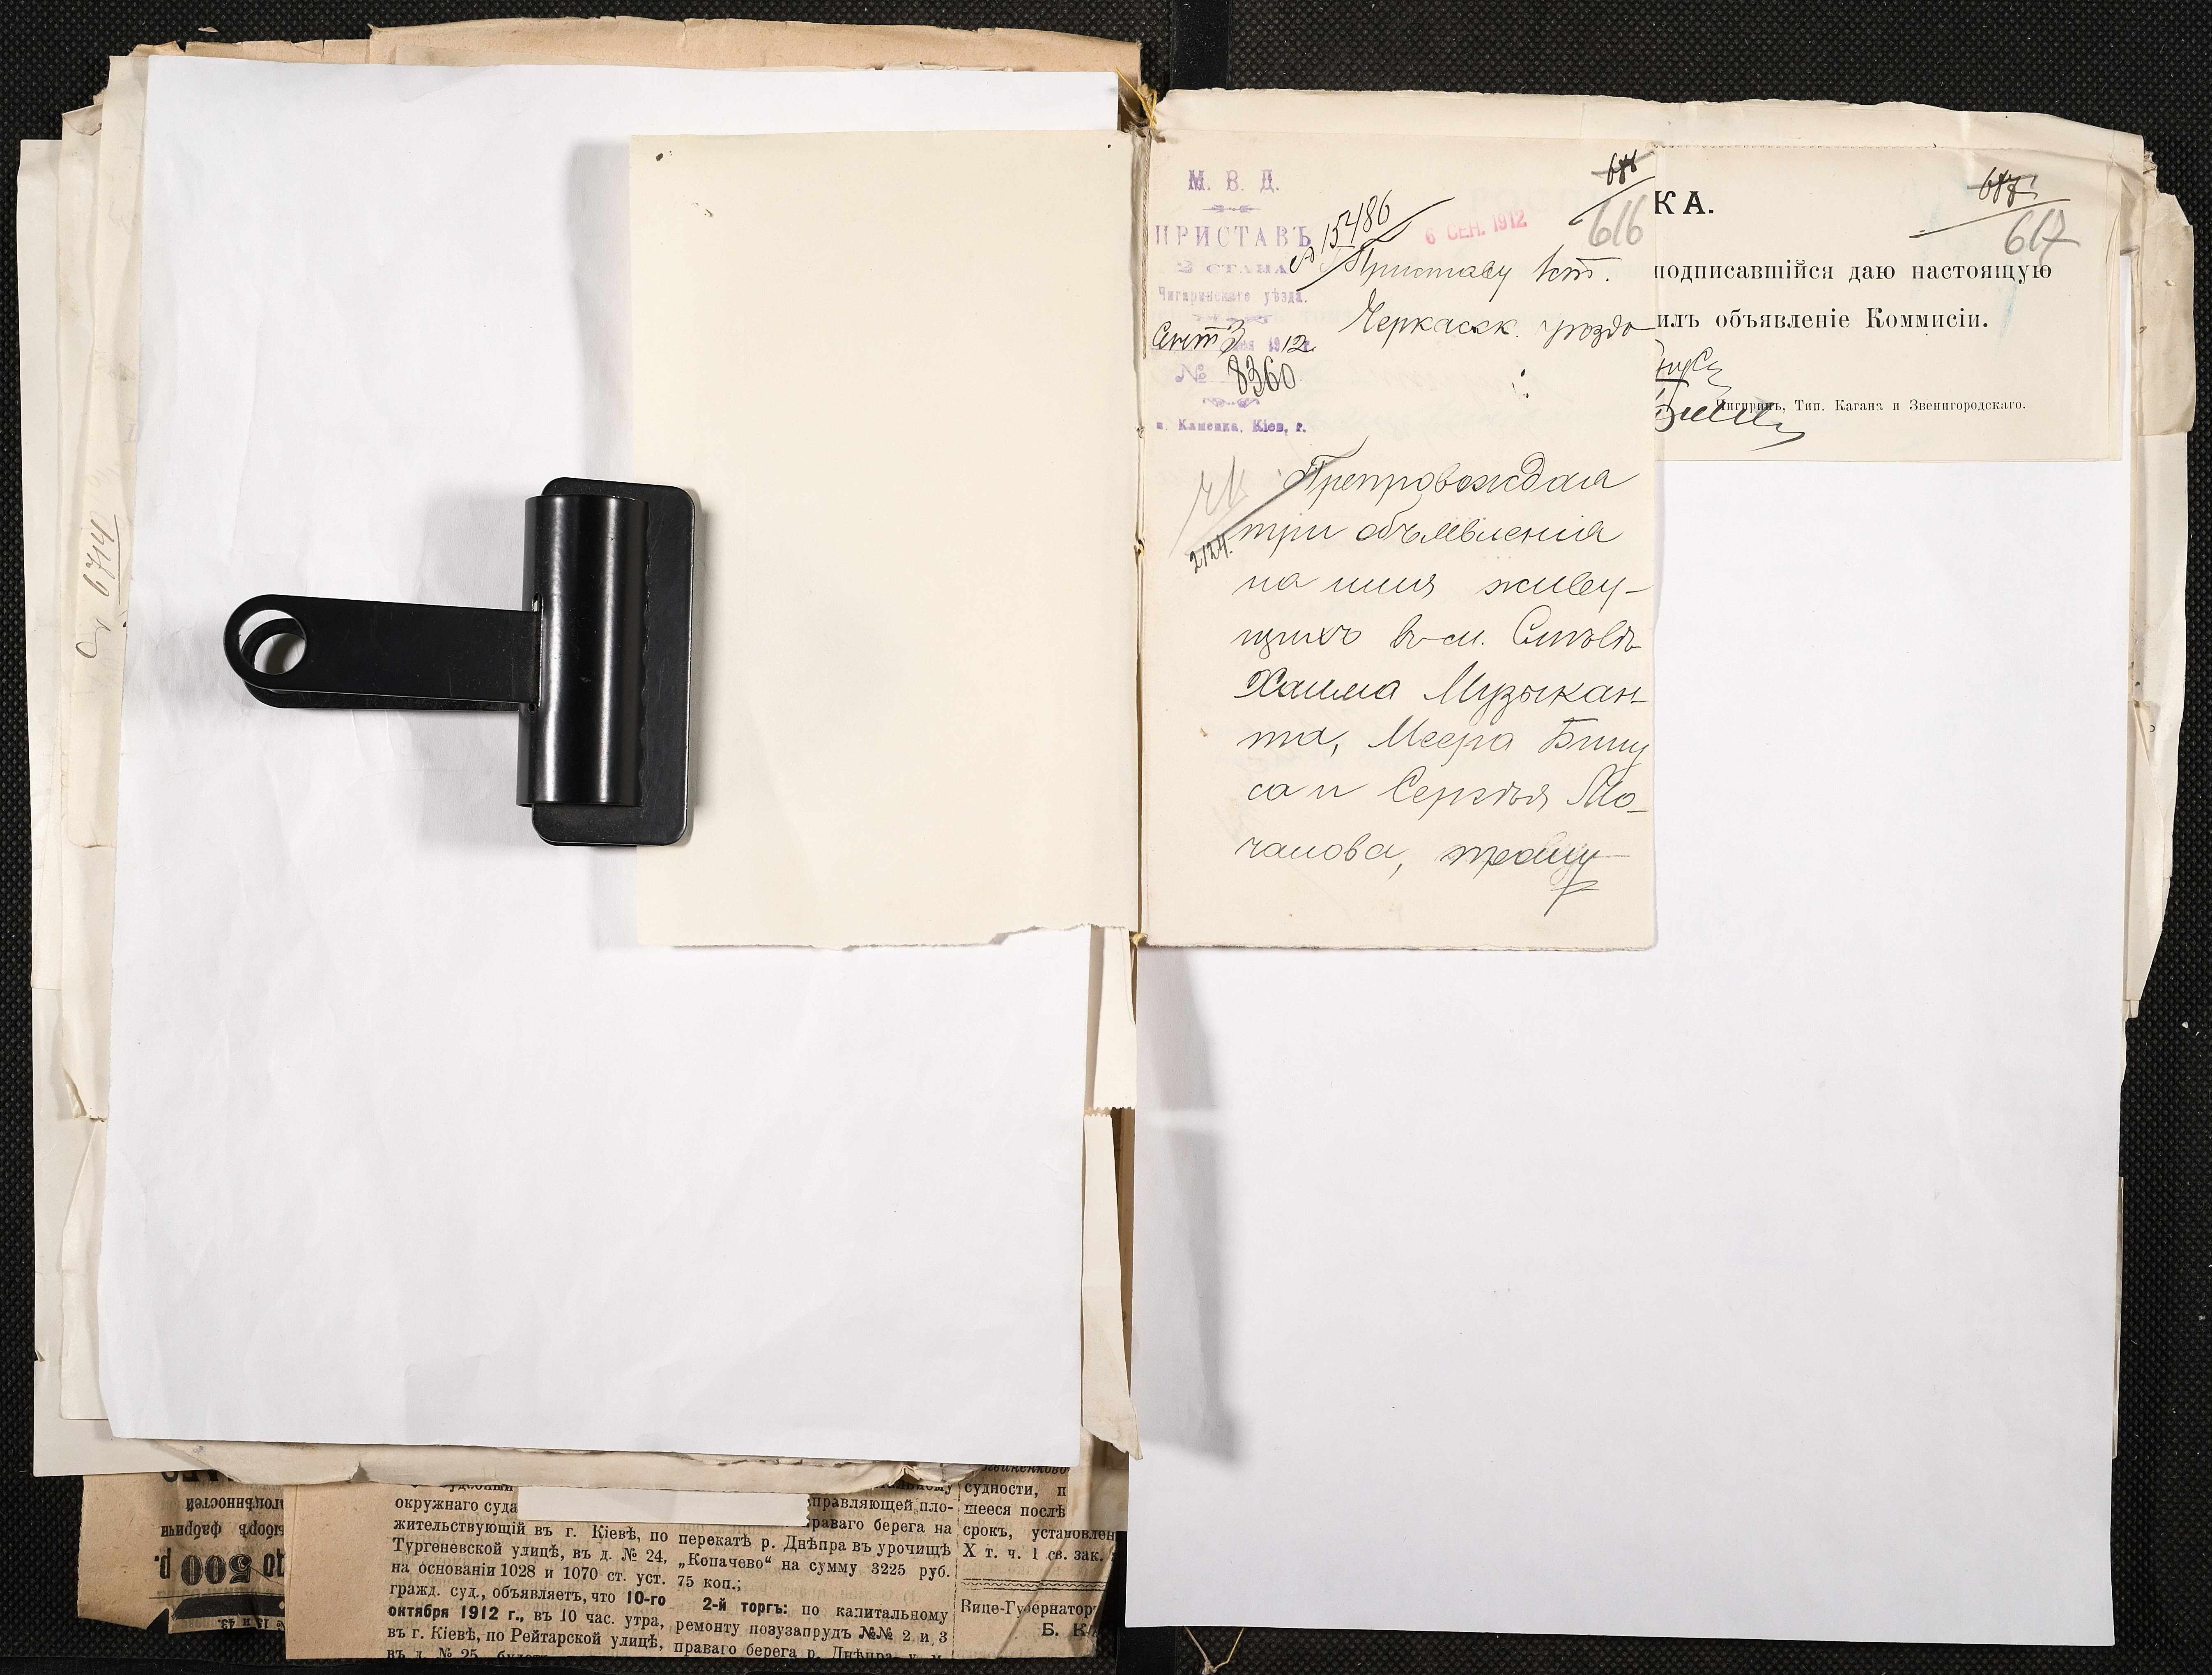 М. В. Д.
ПРИСТАВЪ
2 СТАНА
Чигиринскаго уѣзда.
Сент 3 дня 1912 г.
№ 8360
м. Каменка, Кіев. г.
15486
6 СЕН. 1912
686
616
Приставу 1 ст.
Черкасск. уѣзда
2124.
Препровождая
три объявленія
на имя живу-
щихъ въ м. Смѣлѣ
Хаима Музыкан-
та, Меера Бину
са и Сергѣя Мо-
чалова, прошу
КА.
687
617
подписавшійся даю настоящую
илъ объявленіе Коммисіи.
Чигиринъ, Тип. Кагана и Звенигородскаго.
6714
окружнаго суда
жительствующій въ г. Кіевѣ, по
Тургеневской улицѣ, въ д. № 24,
на основаніи 1028 и 1070 ст. уст.
гражд. суд., объявляетъ, что 10-го
октября 1912 г., въ 10 час. утра,
въ г. Кіевѣ, по Рейтарской улицѣ,
въ д. № 25, будетъ
правляющей пло-
раваго берега на
перекатѣ р. Днѣпра въ урочищѣ
„Копачево“ на сумму 3225 руб.
75 коп.;
2-й торгъ: по капитальному
ремонту позузапрудъ №№ 2 и 3
праваго берега р. Днѣпра
судности, п
шееся послѣ
срокъ, установлен
Х т. ч. 1 св. зак.
Вице-Губернатор
Б. К
агоцѣнностей
ыборъ фабричн
до 500 р.